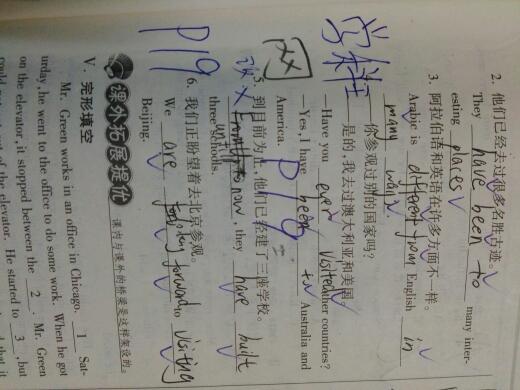 2. 他们已经去过很多名胜古迹。
They have been to many inter-
esting places
3. 阿拉伯语和英语在许多方面不一样。
Arabic is different from English in
many ways.
你参观过别的国家吗?
是的,我去过澳大利亚和美国。
—Have you ever visited other countries?
—Yes, I have been to Australia and
America.
5. 到目前为止,他们已经建了三座学校。
now, they have built
three schools.
6. 我们正盼望着去北京参观。
We are forward to visiting
Beijing.
P19
课外拓展提优 课内与课外的桥梁是这样架设的。
V. 完形填空
Mr. Green works in an office in Chicago. 1 Sat-
urday, he went to the office to do some work. When he got
on the elevator, it stopped between the 2 . Mr. Green
out of the elevator. He started to 3 , but